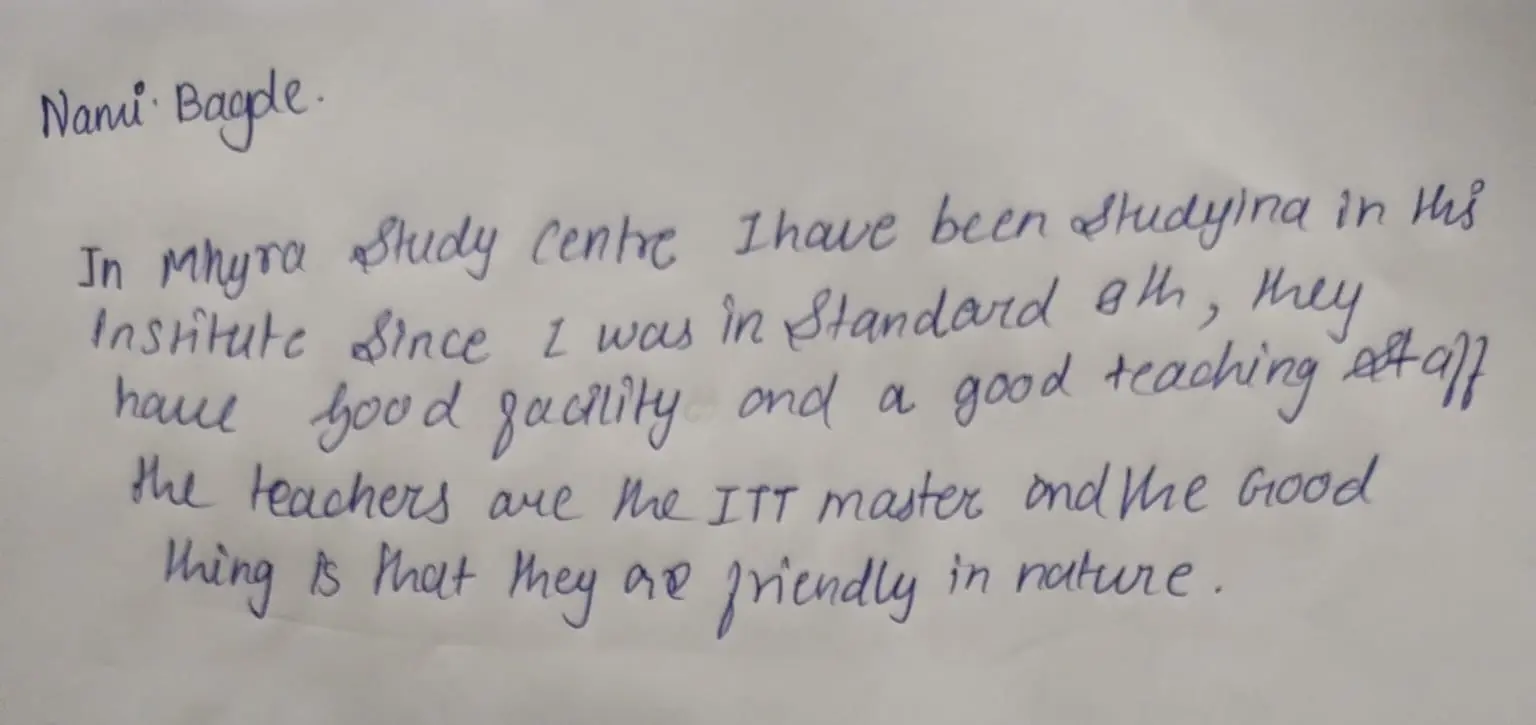 Nami. Bagde.
In Mhyra Study Centre I have been Studying in this
Institute Since I was in Standard 8th, they
have good facility and a good teaching staff
the teachers are the ITT master and the Good
thing is that they are friendly in nature.